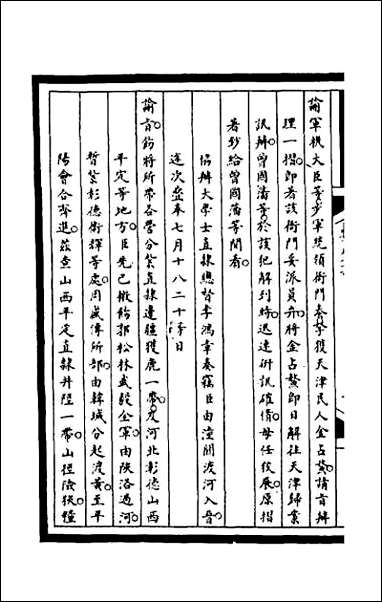 諭軍機大臣等步軍統領衙門奏拏獲天津民人金占鰲請旨辦
理一摺即著該衙門妥派員弁將金占鰲即日解往天津歸案
訊辦曾國藩等於該犯解到時迅速研訊確情毋任狡展原摺
著鈔給曾國藩等閱看
協辦大學士直隸總督李鴻章奏竊臣由潼關渡河入晉
迭次恭奉七月十八二十等日
諭旨飭將所帶各營分紮直隸邊疆獲鹿一帶及河北彰德山西
平定等地方臣先已檄飭郭松林武毅全軍由陝洛過河
暫紮彰德衛輝等處周盛傳所部由韓城分起渡黃至平
陽會合齊進茲查山西平定直隸井陘一帶山徑險狹糧